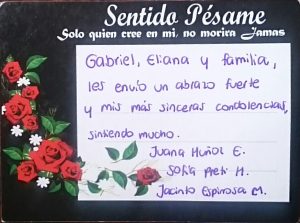 Sentido Pésame
Solo quien cree en mi, no morira Jamas
Gabriel, Eliana y familia,
les envío un abrazo fuerte
y mis más sinceras condolencias,
sintiendo mucho.
Juana Muñoz E.
Sofía M.
Jacinto Espinosa M.